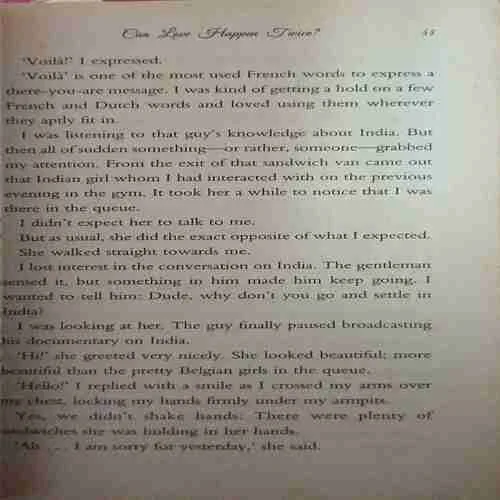 Can Love Happen Twice? 55
'Voilà!' I expressed.
'Voilà' is one of the most used French words to express a
there-you-are message. I was kind of getting a hold on a few
French and Dutch words and loved using them wherever
they aptly fit in.
I was listening to that guy's knowledge about India. But
then all of sudden something—or rather, someone—grabbed
my attention. From the exit of that sandwich van came out
that Indian girl whom I had interacted with on the previous
evening in the gym. It took her a while to notice that I was
there in the queue.
I didn't expect her to talk to me.
But as usual, she did the exact opposite of what I expected.
She walked straight towards me.
I lost interest in the conversation on India. The gentleman
sensed it, but something in him made him keep going. I
wanted to tell him: Dude, why don't you go and settle in
India?
I was looking at her. The guy finally paused broadcasting
his documentary on India.
'Hi!' she greeted very nicely. She looked beautiful; more
beautiful than the pretty Belgian girls in the queue.
'Hello!' I replied with a smile as I crossed my arms over
my chest, locking my hands firmly under my armpits.
Yes, we didn't shake hands. There were plenty of
sandwiches she was holding in her hands.
'Ah . . . I am sorry for yesterday,' she said.